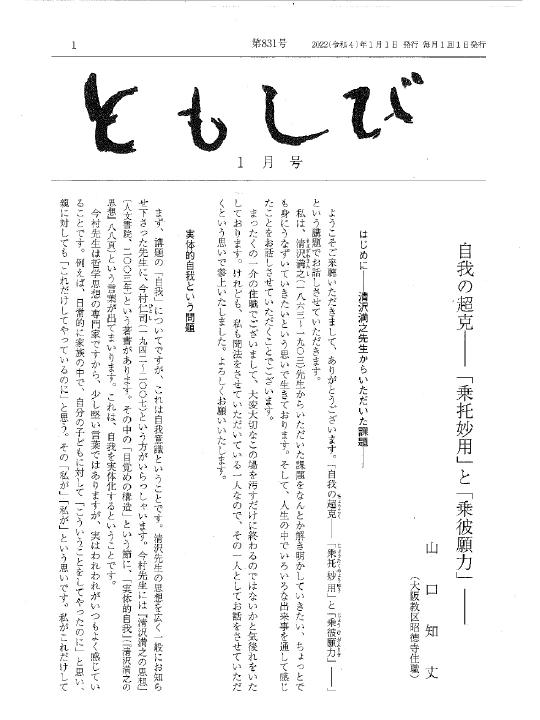 1
第831号
2022(令和4)年1月1日 発行 毎月1回1日発行
ともしび
1月号
自我の超克――「乗托妙用」と「乗彼願力」――
山口知丈
(大阪教区昭徳寺住職)
はじめに――清沢満之先生からいただいた課題――
ようこそご来聴いただきまして、ありがとうございます。「自我の超克――「乗托妙用」と「乗彼願力」――」
という講題でお話しさせていただきます。
私は、清沢満之(一八六三―一九〇三)先生からいただいた課題をなんとか解き明かしていきたい、ちょっとで
も身にうなずいていきたいという思いで生きております。そして、人生の中でいろいろな出来事を通して感じ
たことをお話しさせていただくことでございます。
まったくの一介の住職でございまして、大変大切なこの場を汚すだけに終わるのではないかと気後れをいた
しております。けれども、私も聞法をさせていただいている一人なので、その一人としてお話をさせていただ
くという思いで参上いたしました。よろしくお願いいたします。
実体的自我という問題
まず、講題の「自我」についてですが、これは自我意識ということです。清沢先生の思想を広く一般にお知ら
せ下さった先生に、今村仁司(一九四二―二〇〇七)という方がいらっしゃいます。今村先生には『清沢満之の思想』
(人文書院、二〇〇三年)という著書があります。その中の「目覚めの構造」という節に、「実体的自我」(『清沢満之の
思想』八八頁)という言葉が出てまいります。これは、自我を実体化するということです。
今村先生は哲学思想の専門家ですから、少し堅い言葉ではありますが、実はわれわれがいつもよく感じてい
ることです。例えば、日常的に家族の中で、自分の子どもに対して「こういうことをしてやったのに」と思い、
親に対しても「これだけしてやっているのに」と思う。その「私が」「私が」という思いです。私がこれだけして